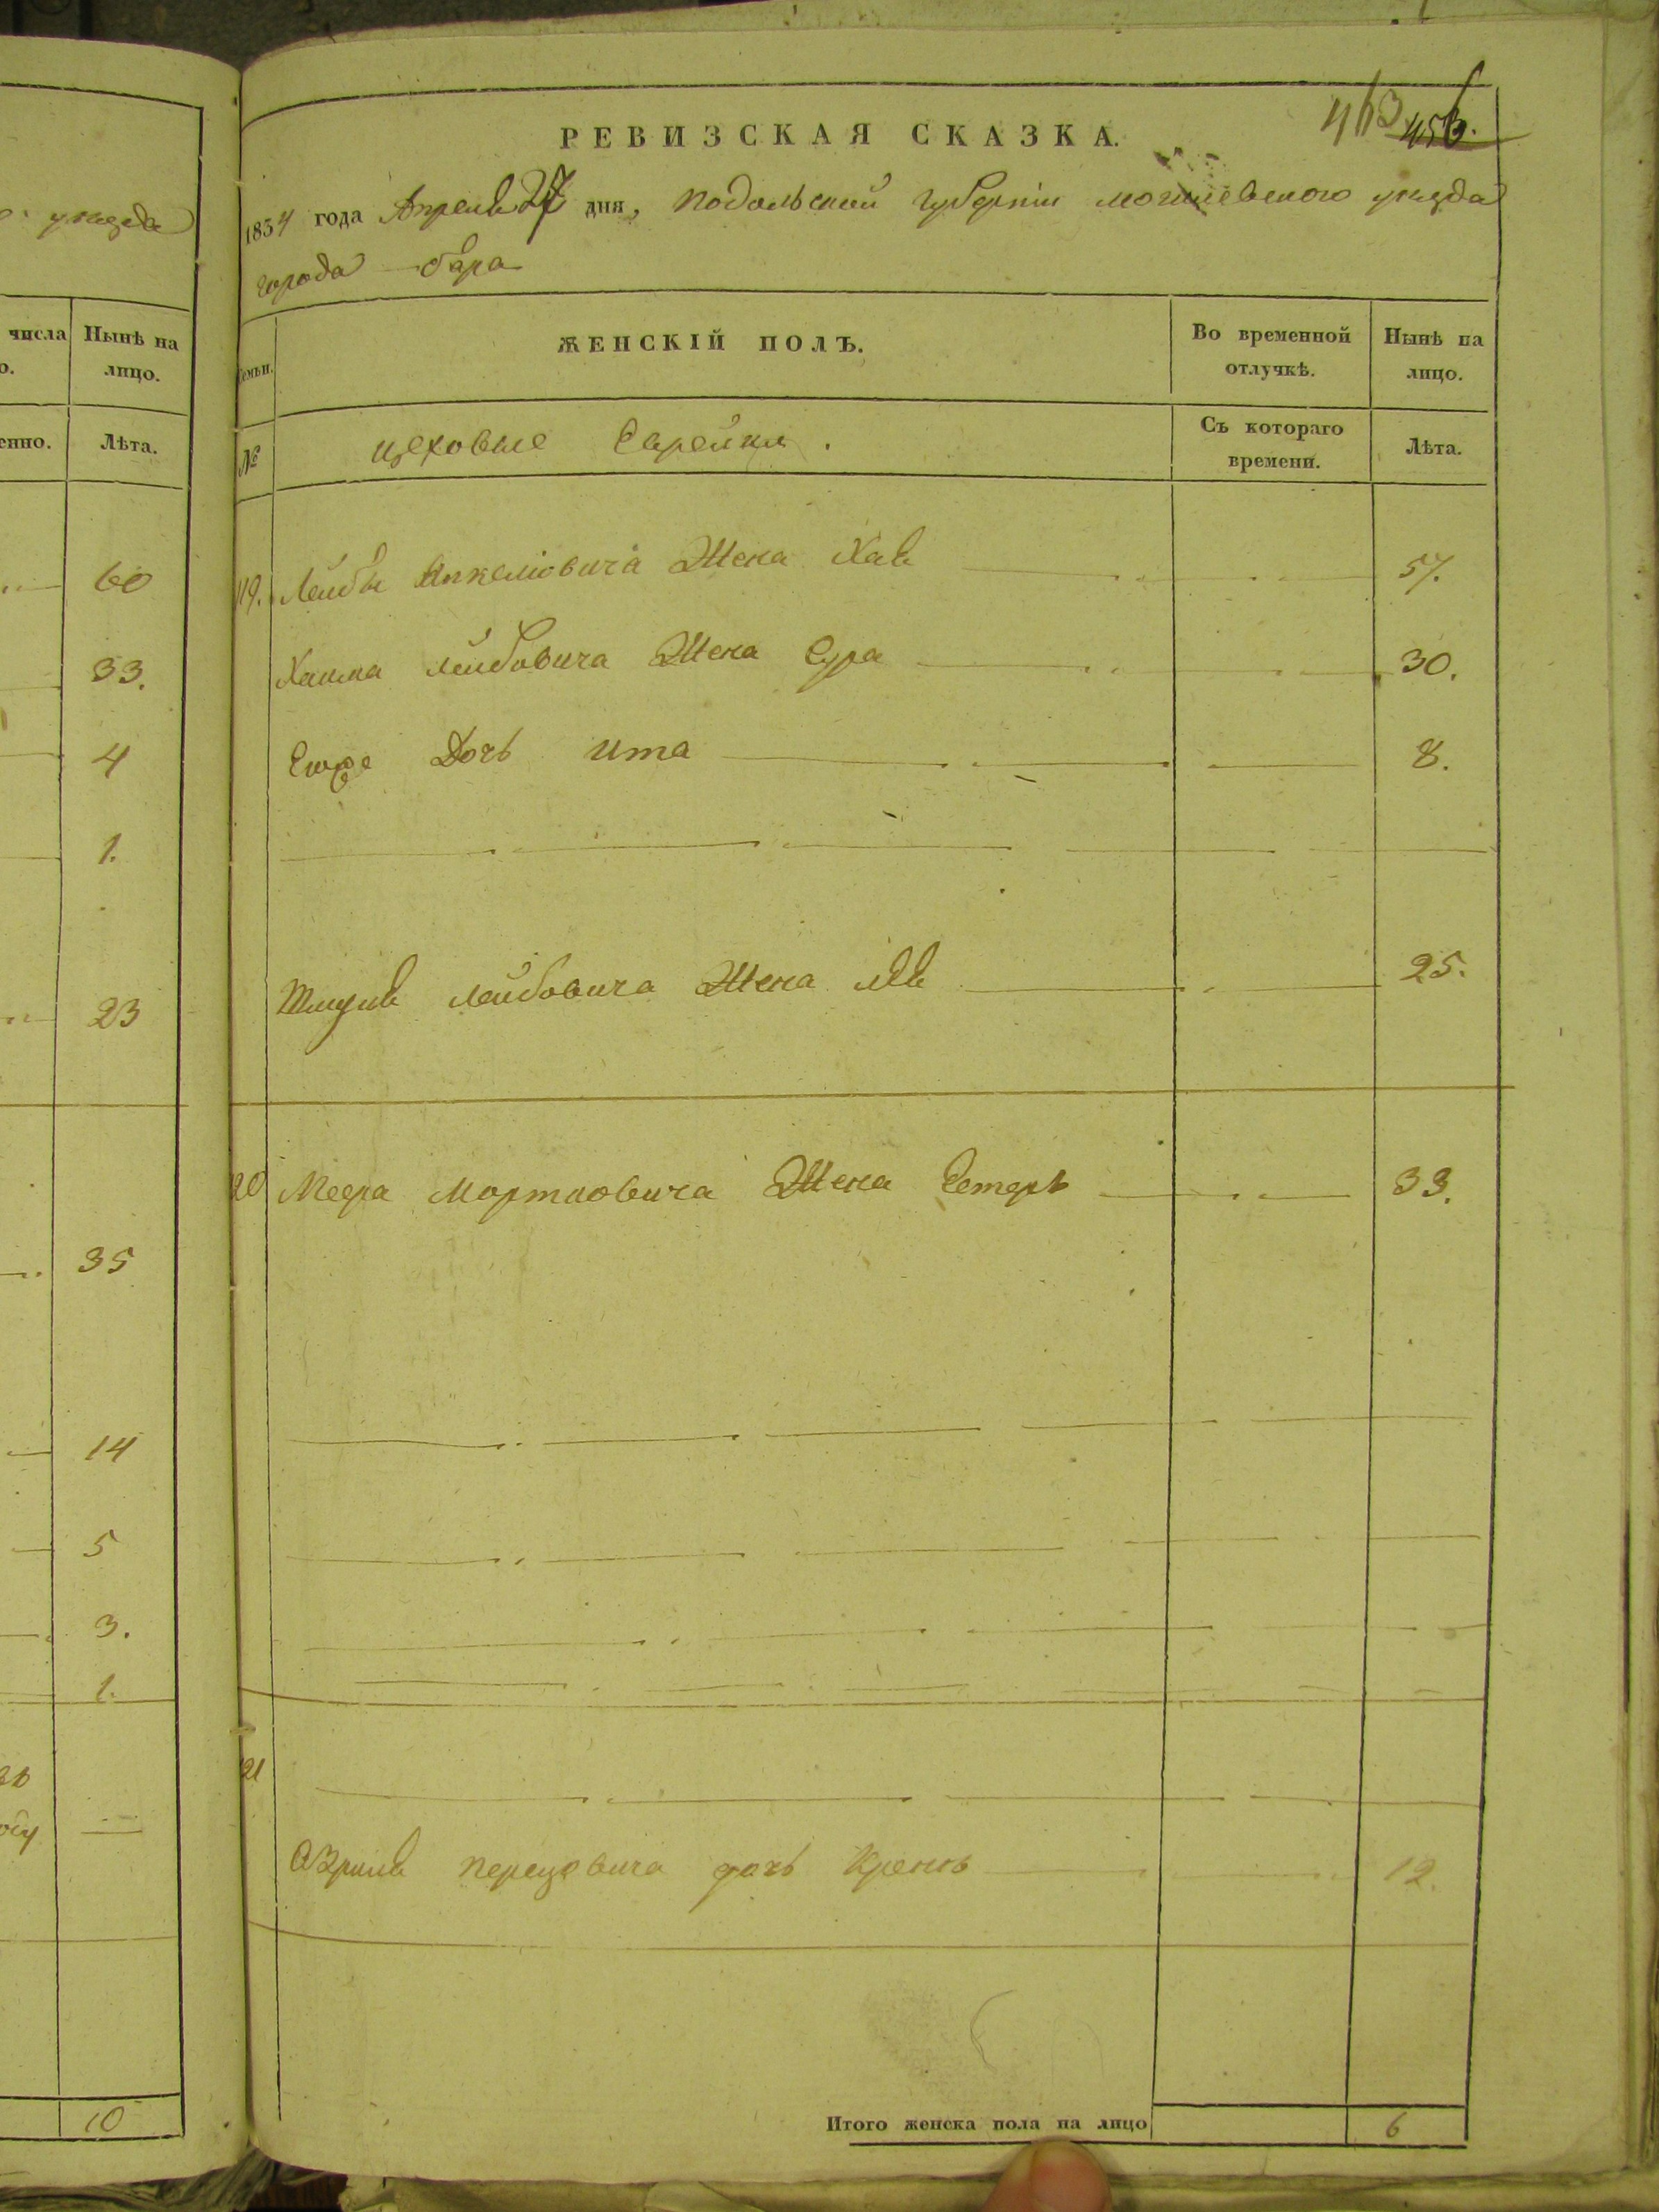 уезда
числа Нынѣ на
лицо.
Лѣта.
60
33.
4
1.
23
35
14
5
3.
1.
10
РЕВИЗСКАЯ СКАЗКА.
1834 года Апреля 27 дня, Подольской Губернiи могилевского уезда
города бара
Семьи. ЖЕНСКІЙ ПОЛЪ. Во временной Нынѣ на
отлучкѣ. лицо.
№ цеховые Еврейки. Съ котораго Лѣта.
времени.
119. Лейбы Янкелiовича Жена Хая 57.
Хаима лейбовича Жена Сура 30.
Дочь ита 8.
Шмуля лейбовича Жена 25.
20 Меера Мортковича Жена Естеръ 33.
21
Азриля перецовича дочь Крейна 12.
Итого женска пола на лицо 6